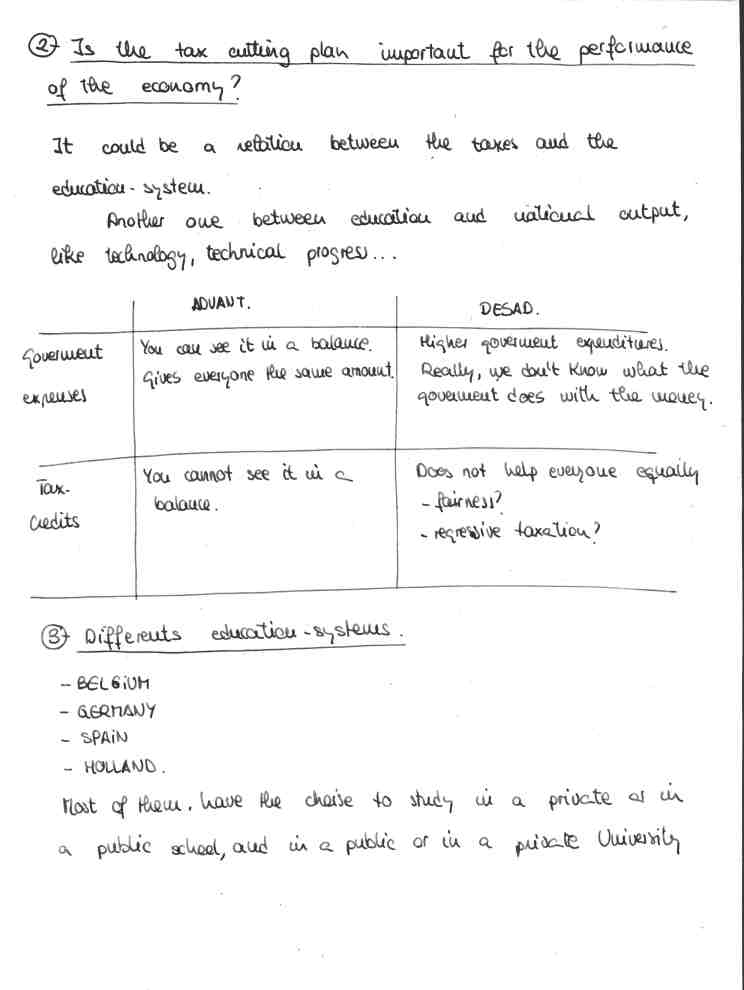 2) Is the tax cutting plan important for the performance
of the economy?
It could be a relation between the taxes and the
education-system.
Another one between education and national output,
like technology, technical progress...
ADVANT.
DESAD.
Goverment
expenses
You can see it in a balance.
Gives everyone the same amount.
Higher goverment expenditures.
Really, we don't know what the
goverment does with the money.
Tax-
credits
You cannot see it in a
balance.
Does not help everyone equally
- fairness?
- regressive taxation?
3) Differents education-systems.
- BELGIUM
- GERMANY
- SPAIN
- HOLLAND.
Most of them, have the choise to study in a private or in
a public school, and in a public or in a private University